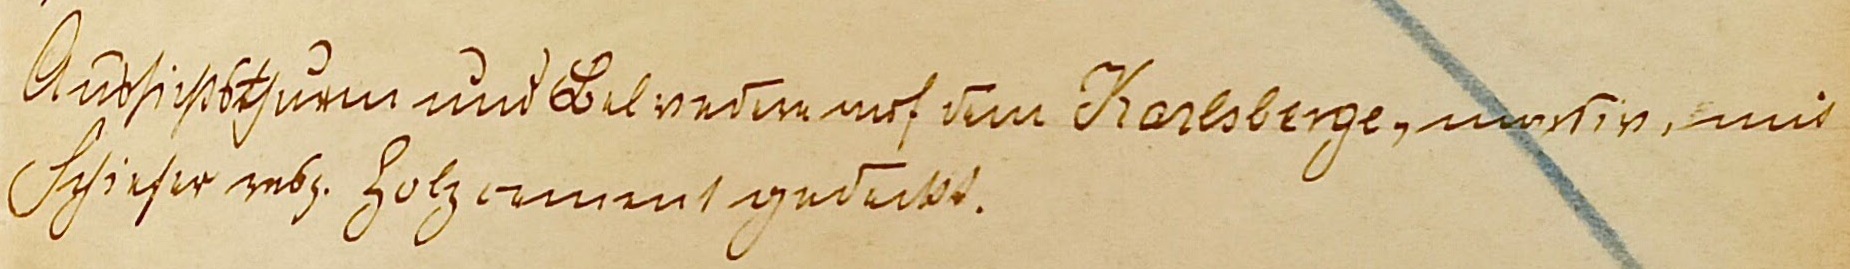 Aussichtsthurm und Belvedere auf dem Karlsberge, massiv, mit
Schiefer resp. Holzcement gedeckt.